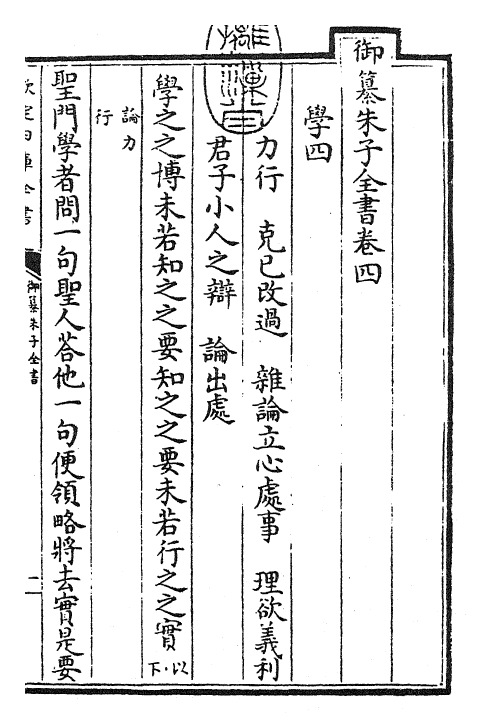 御纂朱子全書卷四
學四
力行　克己改過　雜論立心處事　理欲義利
君子小人之辯　論出處
學之之博未若知之之要知之之要未若行之之實以下
論力行
聖門學者問一句聖人答他一句便領略將去實是要
欽定四庫全書
御纂朱子全書